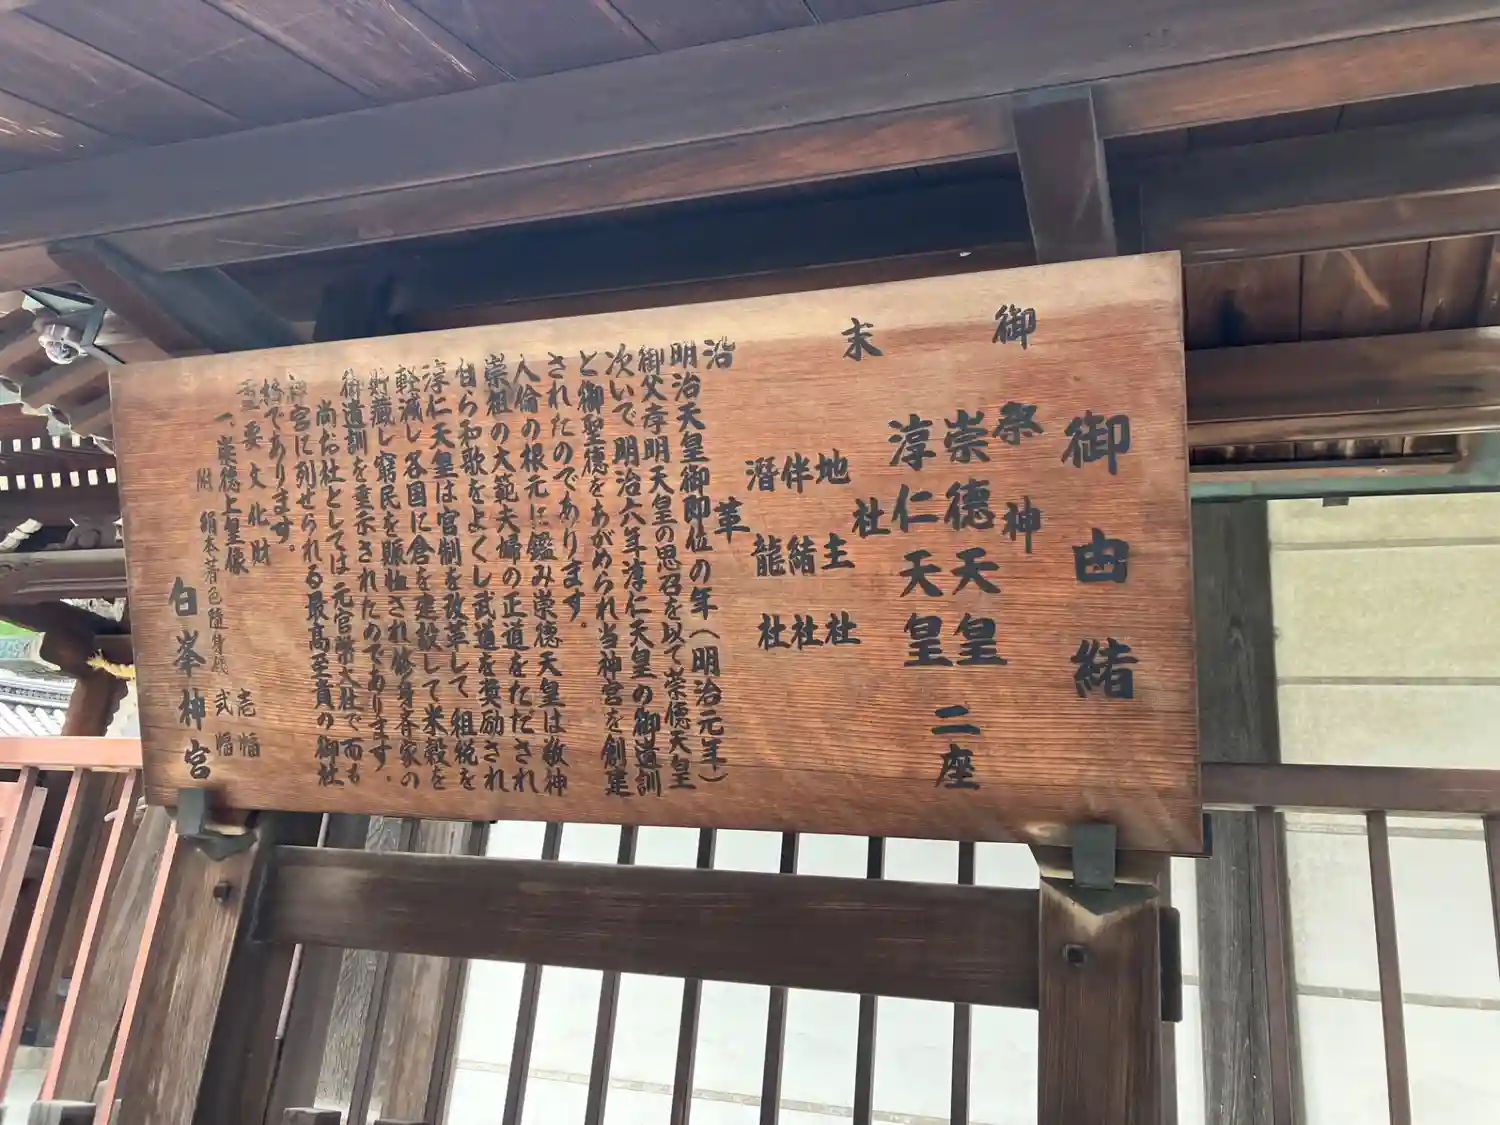 御由緒
御祭神
崇徳天皇
淳仁天皇
二座
末社
地主社
伴緒社
潜龍社
沿革
明治天皇御即位の年(明治元年)
御父孝明天皇の思召を以て崇徳天皇
次いで明治六年淳仁天皇の御遺訓
と御聖徳をあがめられ当神宮を創建
されたのであります。
人倫の根元に鑑み崇徳天皇は敬神
崇祖の大範夫婦の正道をたたされ
自ら和歌をよくし武道を奨励され
淳仁天皇は官制を改革して租税を
軽減し各国に倉を建設して米穀を
貯蔵し窮民を賑恤され修身斉家の
御遺訓を垂示されたのであります。
尚お社としては元官幣大社で而も
神宮に列せられる最高至貴の御社
格であります。
重要文化財
一、崇徳上皇像 壱幅
附 絹本著色随身像 弐幅
白峯神宮